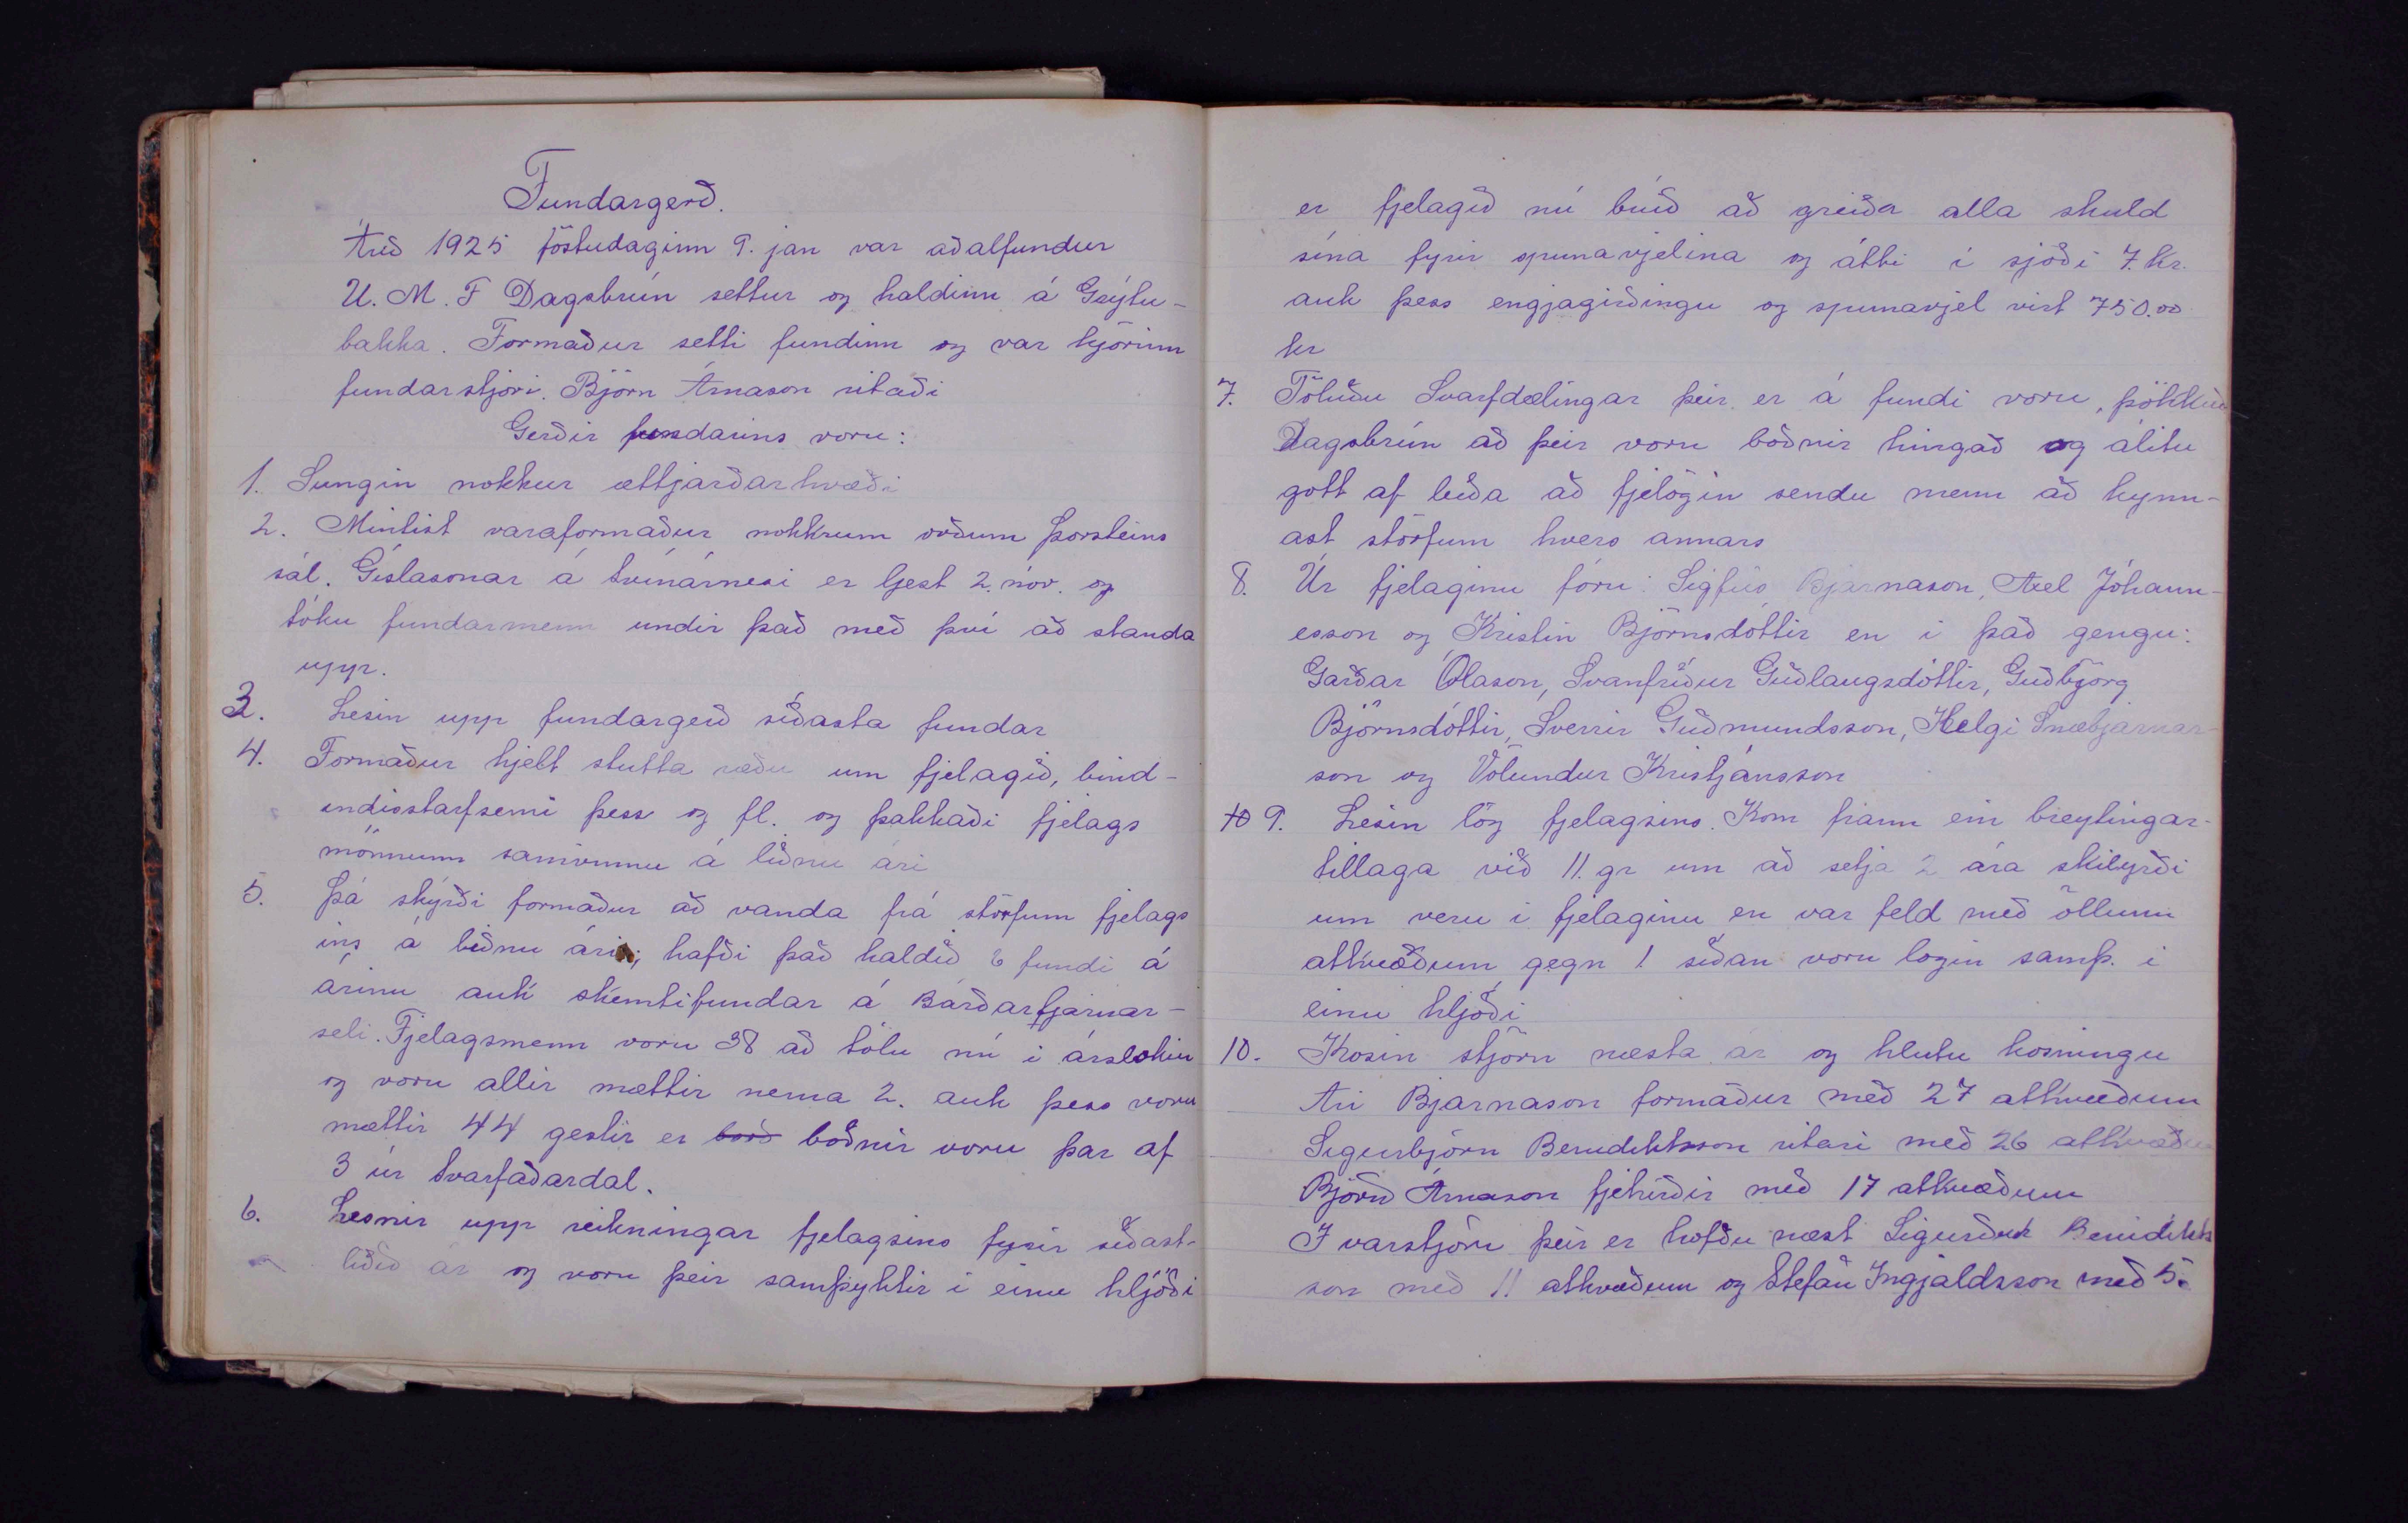 Fundargerð.
Árið 1925 föstudaginn 9. jan var aðalfundur
U. M. F Dagsbrún settur og haldinn á Grýtu-
bakka. Formaður setti fundinn og var kjörinn
fundarstjóri. Björn Árnason ritaði
Gerðir fundarins voru:
1. Sungin nokkur ættjarðarkvæði
2. Mintist varaformaður nokkrum orðum Þorsteins
sál. Gíslasonar á Svínárnesi er ljest 2. nóv. og
tóku fundarmenn undir það með því að standa
upp.
3. Lesin upp fundargerð síðasta fundar
4. Formaður hjelt stutta ræðu um fjelagið, bind-
indisstarfsemi þess og fl. og þakkaði fjelags
mönnum samvinnu á liðnu ári
5. Þá skýrði formaður að vanda frá störfum fjelags
ins á liðnu ári; hafði það haldið 6 fundi á
árinu auk skemtifundar á Bárðartjarnar-
seli. Fjelagsmenn voru 38 að tölu nú í árslokin
og voru allir mættir nema 2. auk þess voru
mættir 44 gestir er boð boðnir voru þar af
3 úr Svarfaðardal.
6. Lesnir upp reikningar fjelagsins fyrir síðast-
liðið ár og voru þeir samþyktir í einu hljóði
er fjelagið nú búið að greiða alla skuld
sína fyrir spunavjelina og átti í sjóði 7. kr.
auk þess engjagirðingu og spunavjel virt 750.00
kr
7. Töluðu Svarfdælingar þeir er á fundi voru, þökkuðu
Dagsbrún að þeir voru boðnir hingað og álitu
gott af leiða að fjelögin sendu menn að kynn-
ast störfum hvers annars
8. Úr fjelaginu fóru: Sigfús Bjarnason, Axel Jóhann-
esson og Kristín Björnsdóttir en í það gengu:
Garðar Ólason, Svanfríður Guðlaugsdóttir, Guðbjörg
Björnsdóttir, Sverrir Guðmundsson, Helgi Snæbjarnar-
son og Völundur Kristjánsson
10 9. Lesin lög fjelagsins. Kom fram ein breytingar-
tillaga við 11. gr um að setja 2 ára skilyrði
um veru í fjelaginu en var feld með öllum
atkvæðum gegn 1. síðan voru login samþ. í
einu hljóði
10. Kosin stjórn næsta ár og hlutu kosningu
Ari Bjarnason formaður með 27 atkvæðum
Sigurbjörn Benediktsson ritari með 26 atkvæðum
Björn Árnason fjehirðir með 17 atkvæðum
I varstjórn þeir er hofðu næst Sigurður Benidikts
son með 11 atkvæðum og Stefán Ingjaldsson með 5.